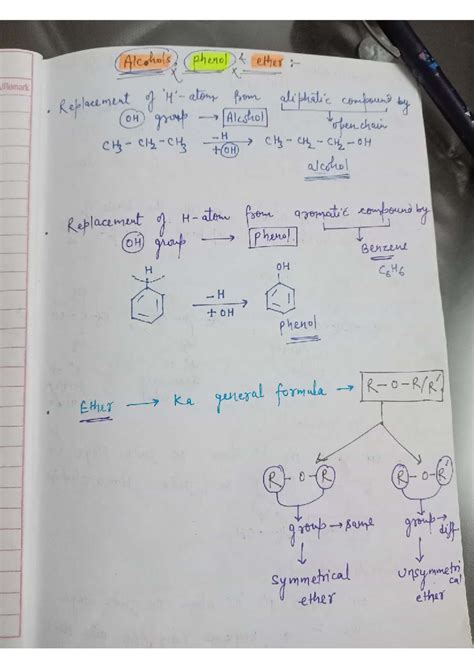 Alcohols, phenol & ether :-
Replacement of 'H'-atom from aliphatic compound by
OH group → Alcohol
open chain
CH3 - CH2 - CH3 -H +OH → CH3 - CH2 - CH2 - OH
alcohol
Replacement of H-atom from aromatic compound by
OH group → phenol
Benzene
C6H6
H
OH
-H
+OH
phenol
Ether → Ka general formula → R-O-R/R'
R-O-R
R-O-R'
group → same
group → diff
symmetrical
ether
unsymmetrical
ether